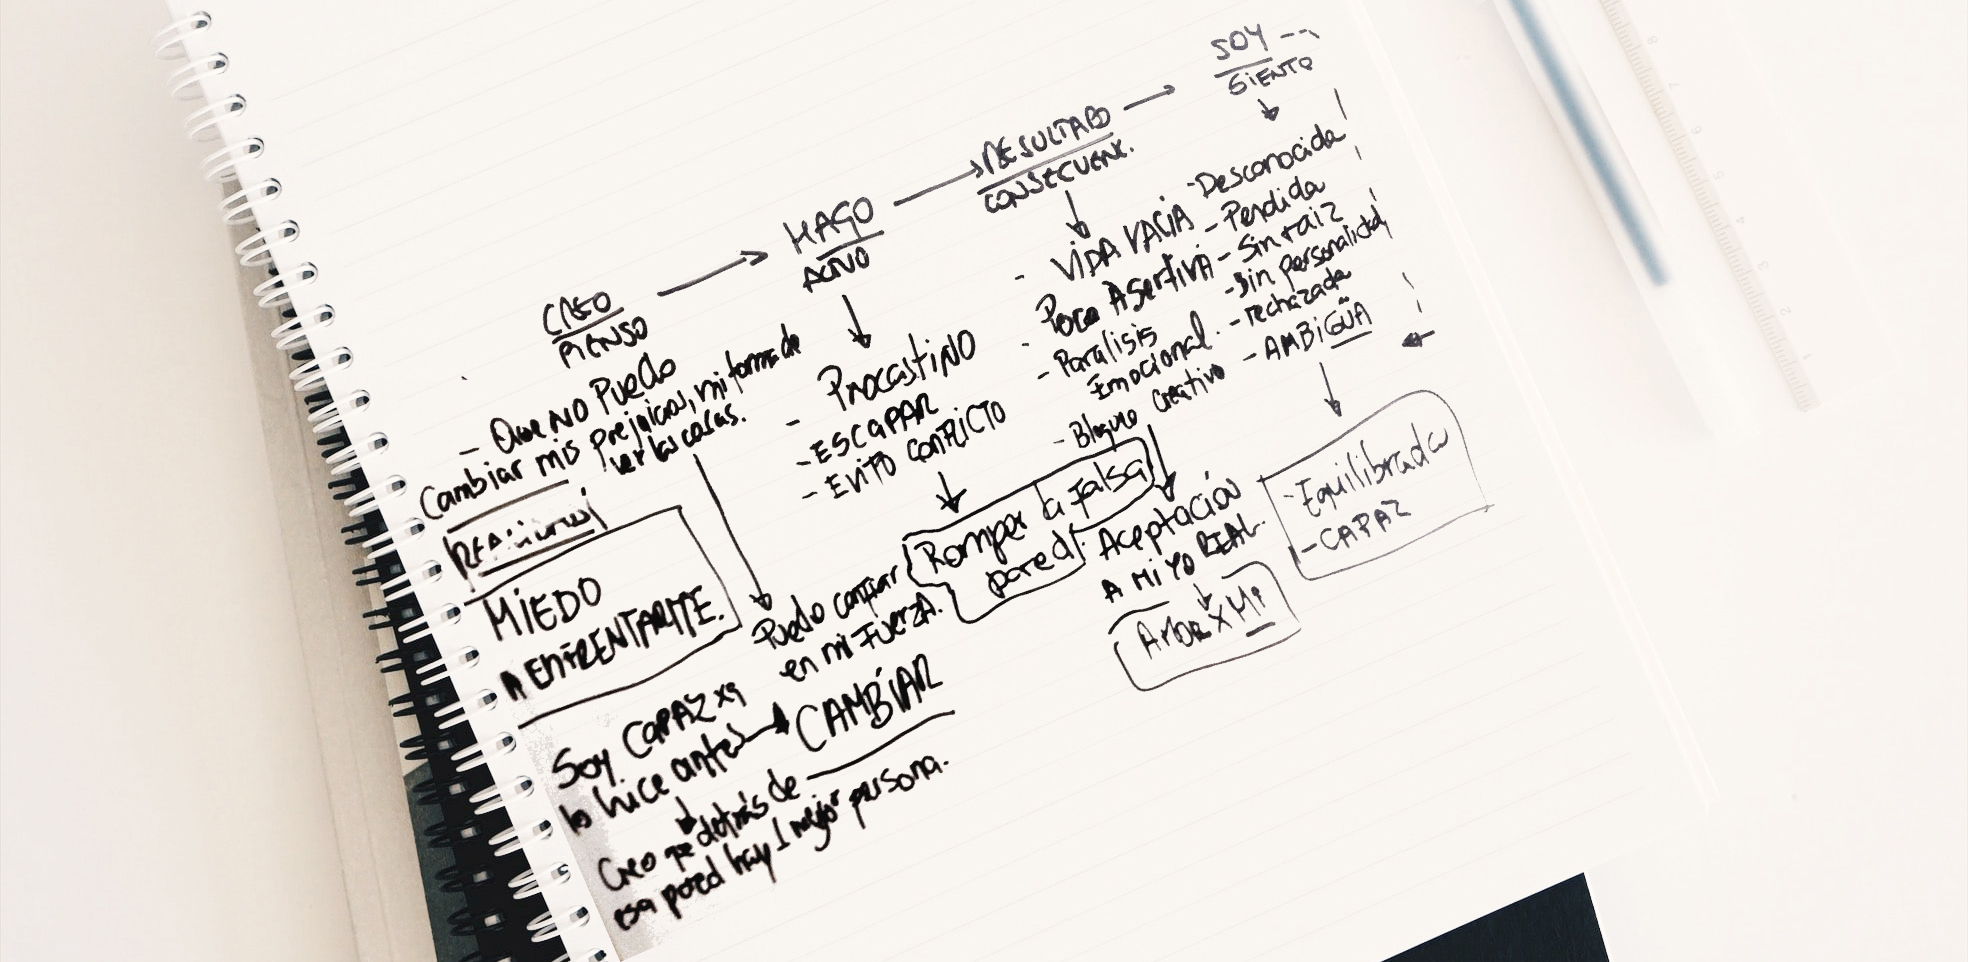 CREO
PIENSO
- Que NO Puedo
Cambiar mis prejuicios, mi forma de
ver las cosas.
MIEDO
A ENFRENTARME.
HAGO
ACTIVO
- Procastino
- ESCAPAR
- EVITO CONFLICTO
RESULTADO
CONSECUENC.
- VIDA VACIA
- Poco Asertiva
- Paralisis
Emocional.
- Bloqueo Creativo
SOY ---
SIENTO
- Desconocida
- Perdida
- Sin raiz
- Sin personalidad
- rechazada
- AMBIGÜA
Puedo confiar
en mi Fuerza.
CAMBIAR
Soy CAPAZ xq
lo hice antes
Creo qe detrás de
esa pared hay 1 mejor persona.
Romper la Falsa
pared.
Aceptación
A MI YO REAL.
AMOR X MI
- Equilibrada
- CAPAZ